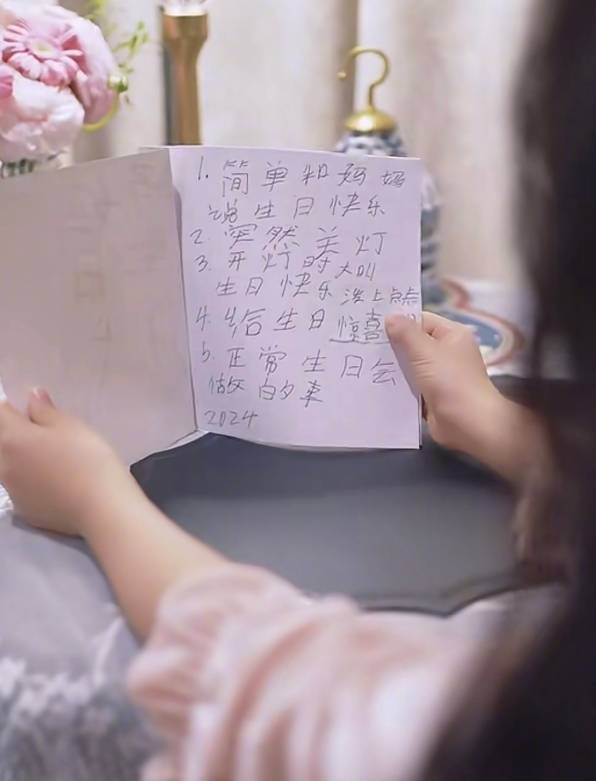 1. 简单和妈妈
说生日快乐
2. 突然关灯
3. 开灯时大叫
生日快乐 送上点点
4. 给生日惊喜
5. 正常生日会
做的事
2024